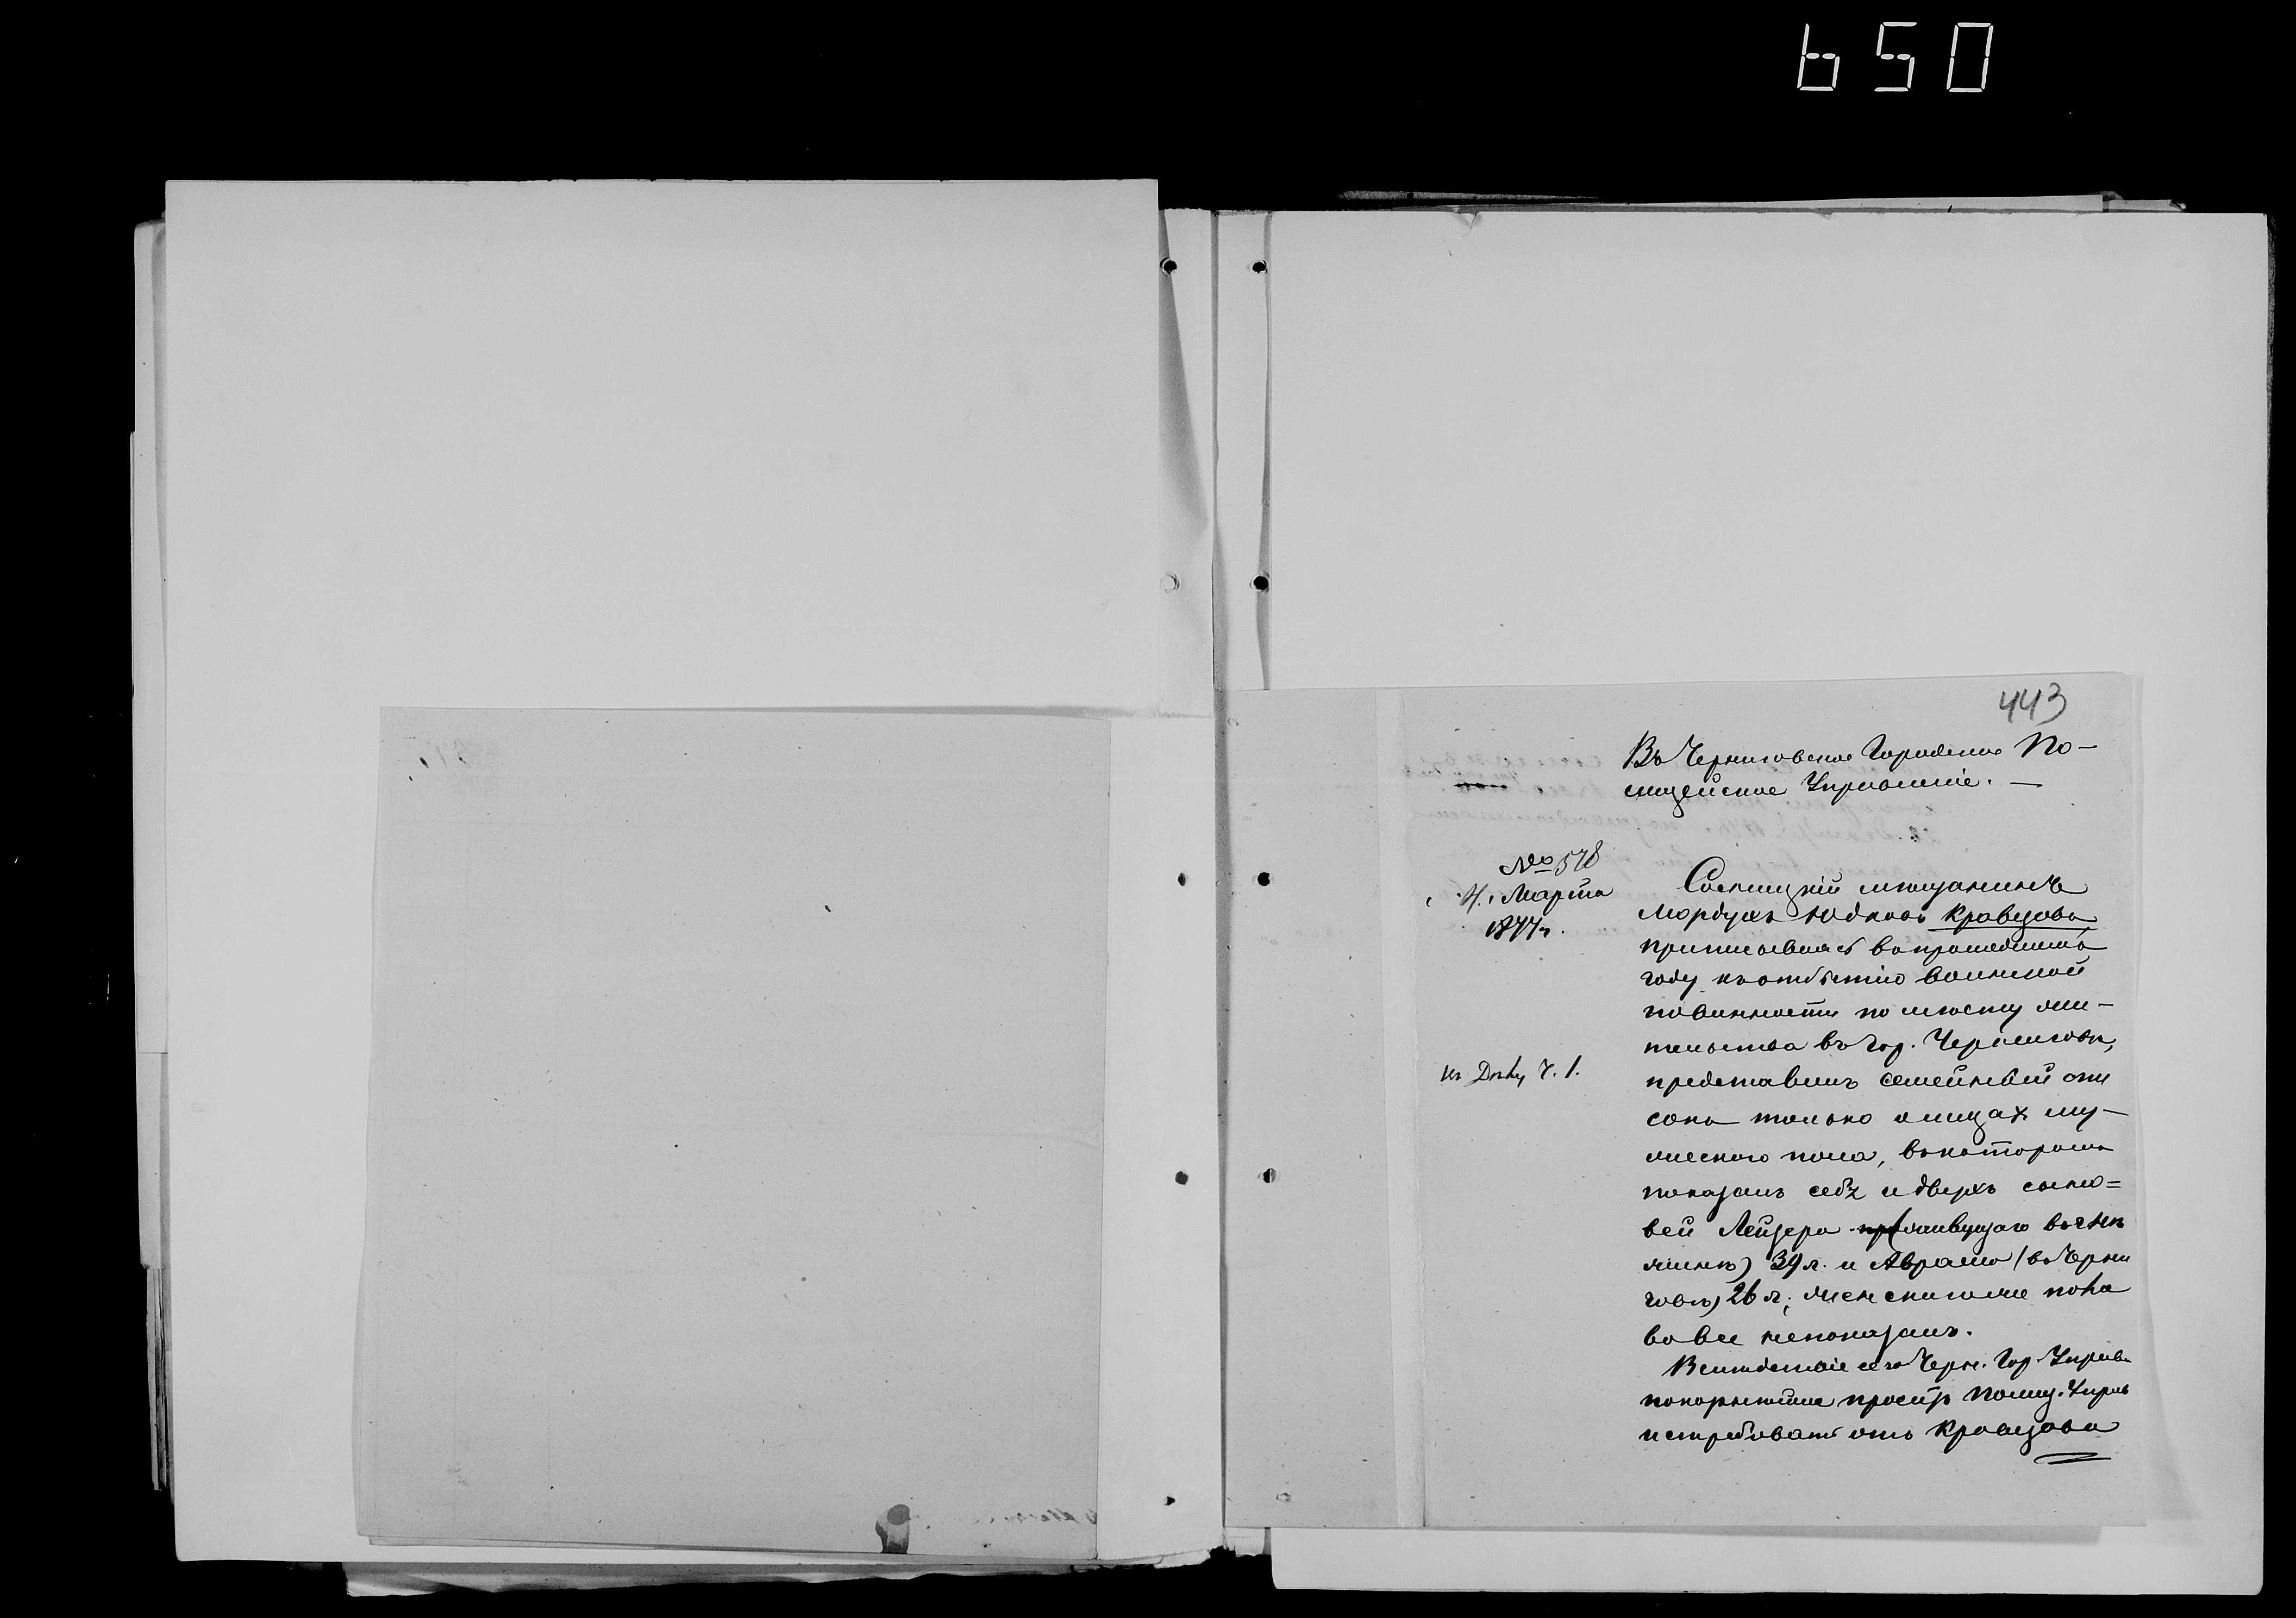 650
443
Въ Черниговское Городское По-
лицейское Управленіе. —
№ 578
4. Марта
1877 г.
Сосницкій мѣщанинъ
Мордухъ Юдковъ Кравцовъ,
приписываясь въ прошедшемъ
году къ отбытію воинской
повинности по мѣсту жи-
тельства въ гор. Черниговѣ,
представилъ семейный спи
сокъ только о лицахъ му-
жескаго пола, въ которомъ
показалъ себя и двухъ сыно=
вей Лейзера (живущаго въ
39 л. и Абрама (въ Черни
говѣ) 26 л.; женскаго же пола
вовсе не показалъ.
Вслѣдствіе сего Черн. Гор. Управа
покорнѣйше проситъ Полиц. Управ
истребовать отъ Кравцова
къ Дѣлу Ч. 1.